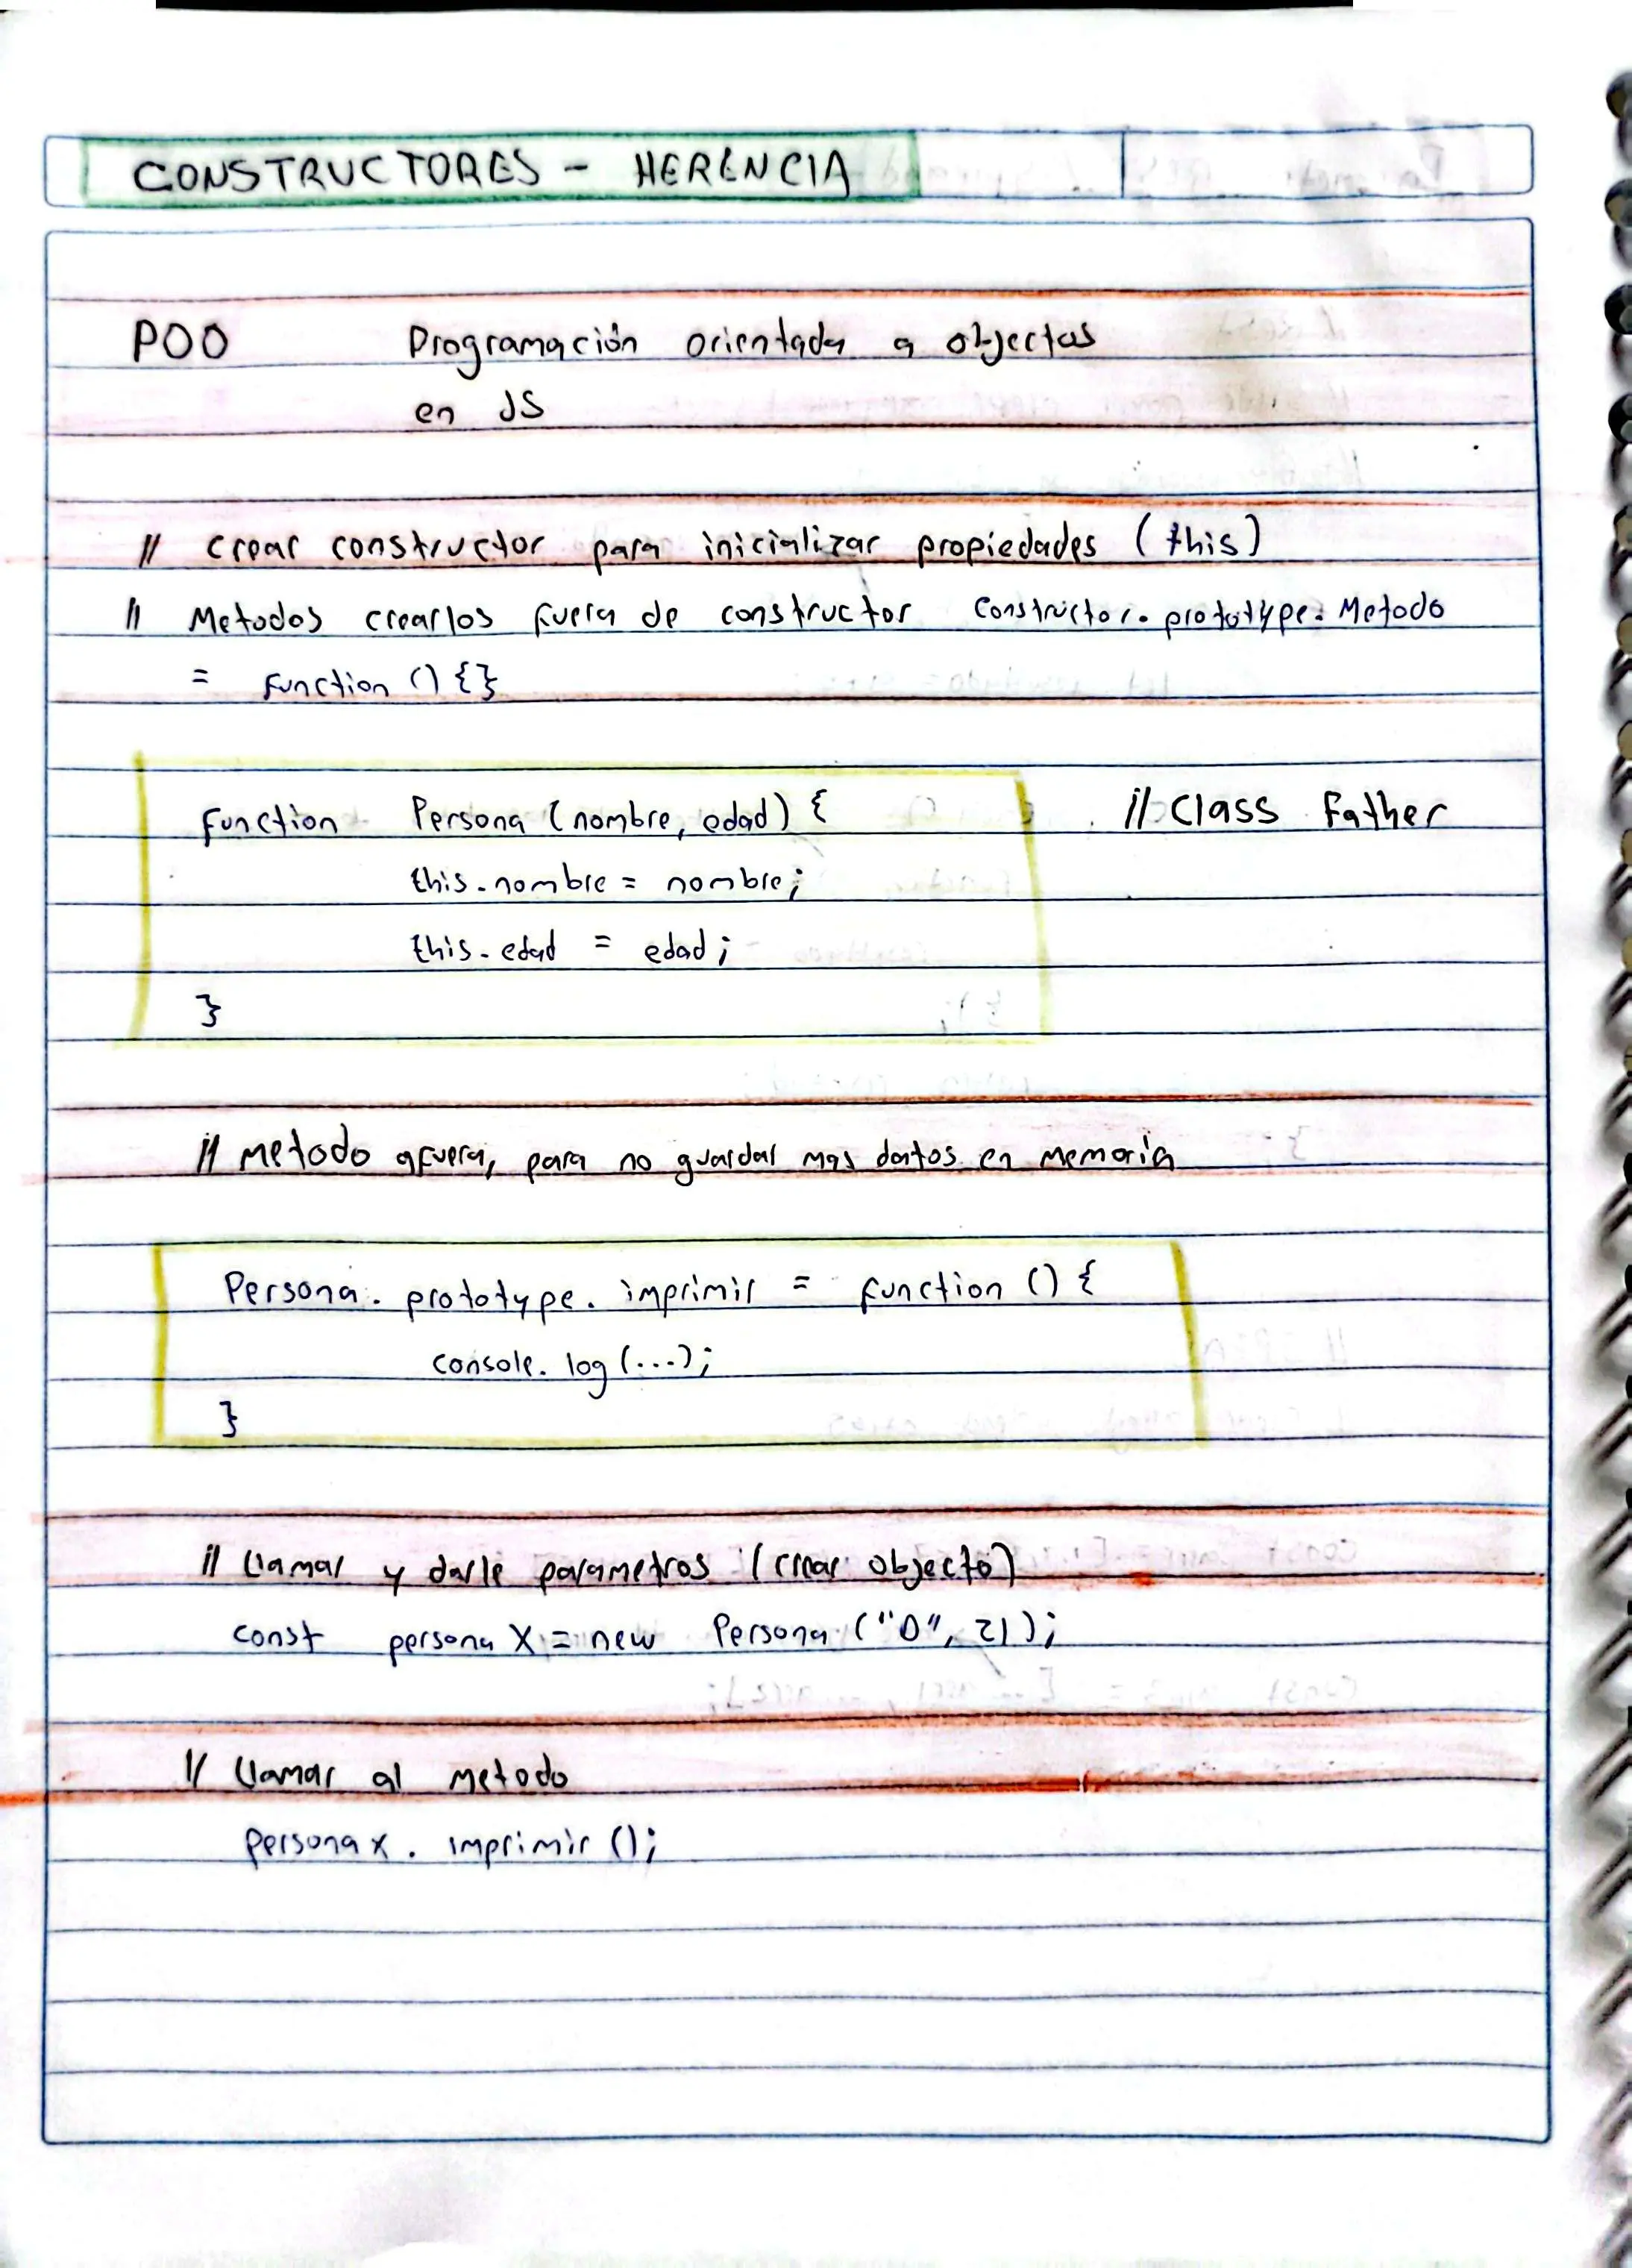 CONSTRUCTORES - HERENCIA
POO Programación orientada a objectos
en JS
// crear constructor para inicializar propiedades (this)
// Metodos crearlos fuera de constructor Constructor.prototype.Metodo
= function () {}
function Persona (nombre, edad) { // Class Father
this.nombre = nombre;
this.edad = edad;
}
// metodo afuera, para no guardar mas datos en memoria
Persona.prototype.imprimir = function () {
console.log(...);
}
// Llamar y darle parametros (crear objecto)
const persona X = new Persona ("D", 21);
// Llamar al metodo
persona x. imprimir ();